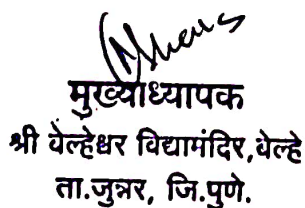 मुख्याध्यापक
श्री वेल्हेश्वर विद्यामंदिर,वेल्हे
ता.जुन्नर, जि.पुणे.